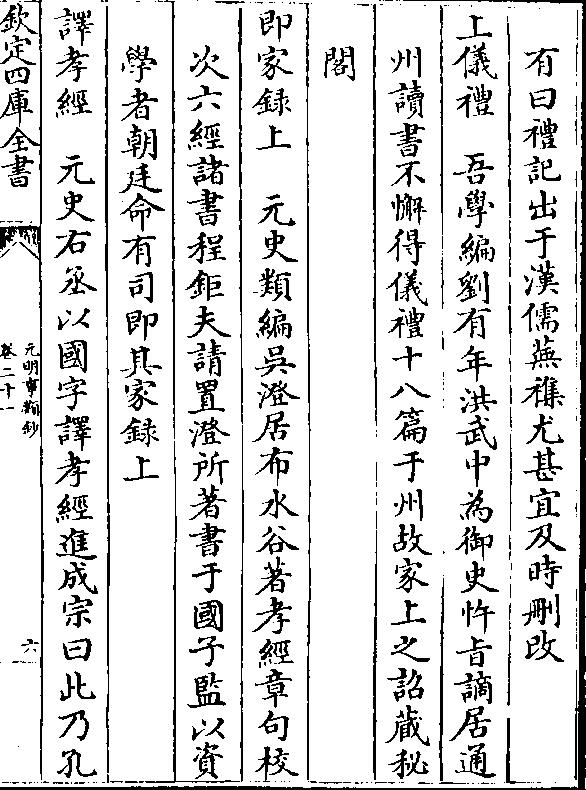 有曰禮記出于漢儒蕪襍尤甚宜及時刪改
上儀禮　吾學編劉有年洪武中為御史忤旨謫居通
州讀書不懈得儀禮十八篇于州故家上之詔蔵秘
閣
即家録上　元史類編吳澄居布水谷著孝經章句校
次六經諸書程鉅夫請置澄所著書于國子監以資
學者朝廷命有司即其家録上
譯孝經　元史右丞以國字譯孝經進成宗曰此乃孔
欽定四庫全書
元明事類鈔
卷二十一
六